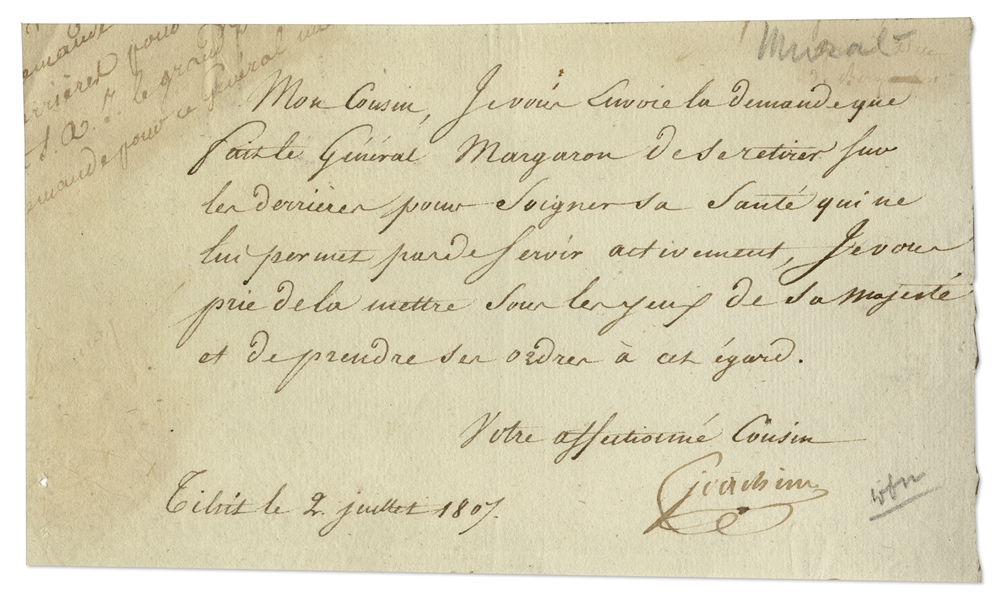 emande
errières pour
S. A. I. le grand
emande pour ce général
Murat
Mon Cousin, Je vous Envoie la demande que
fait le Général Margaron de se retirer sur
les derrières pour Soigner sa Santé qui ne
lui permet pas de servir activement, Je vous
prie de la mettre sous les yeux de Sa Majesté
et de prendre ses ordres à cet égard.
Votre affectionné Cousin
Joachim
Tilsit le 2. juillet 1807.